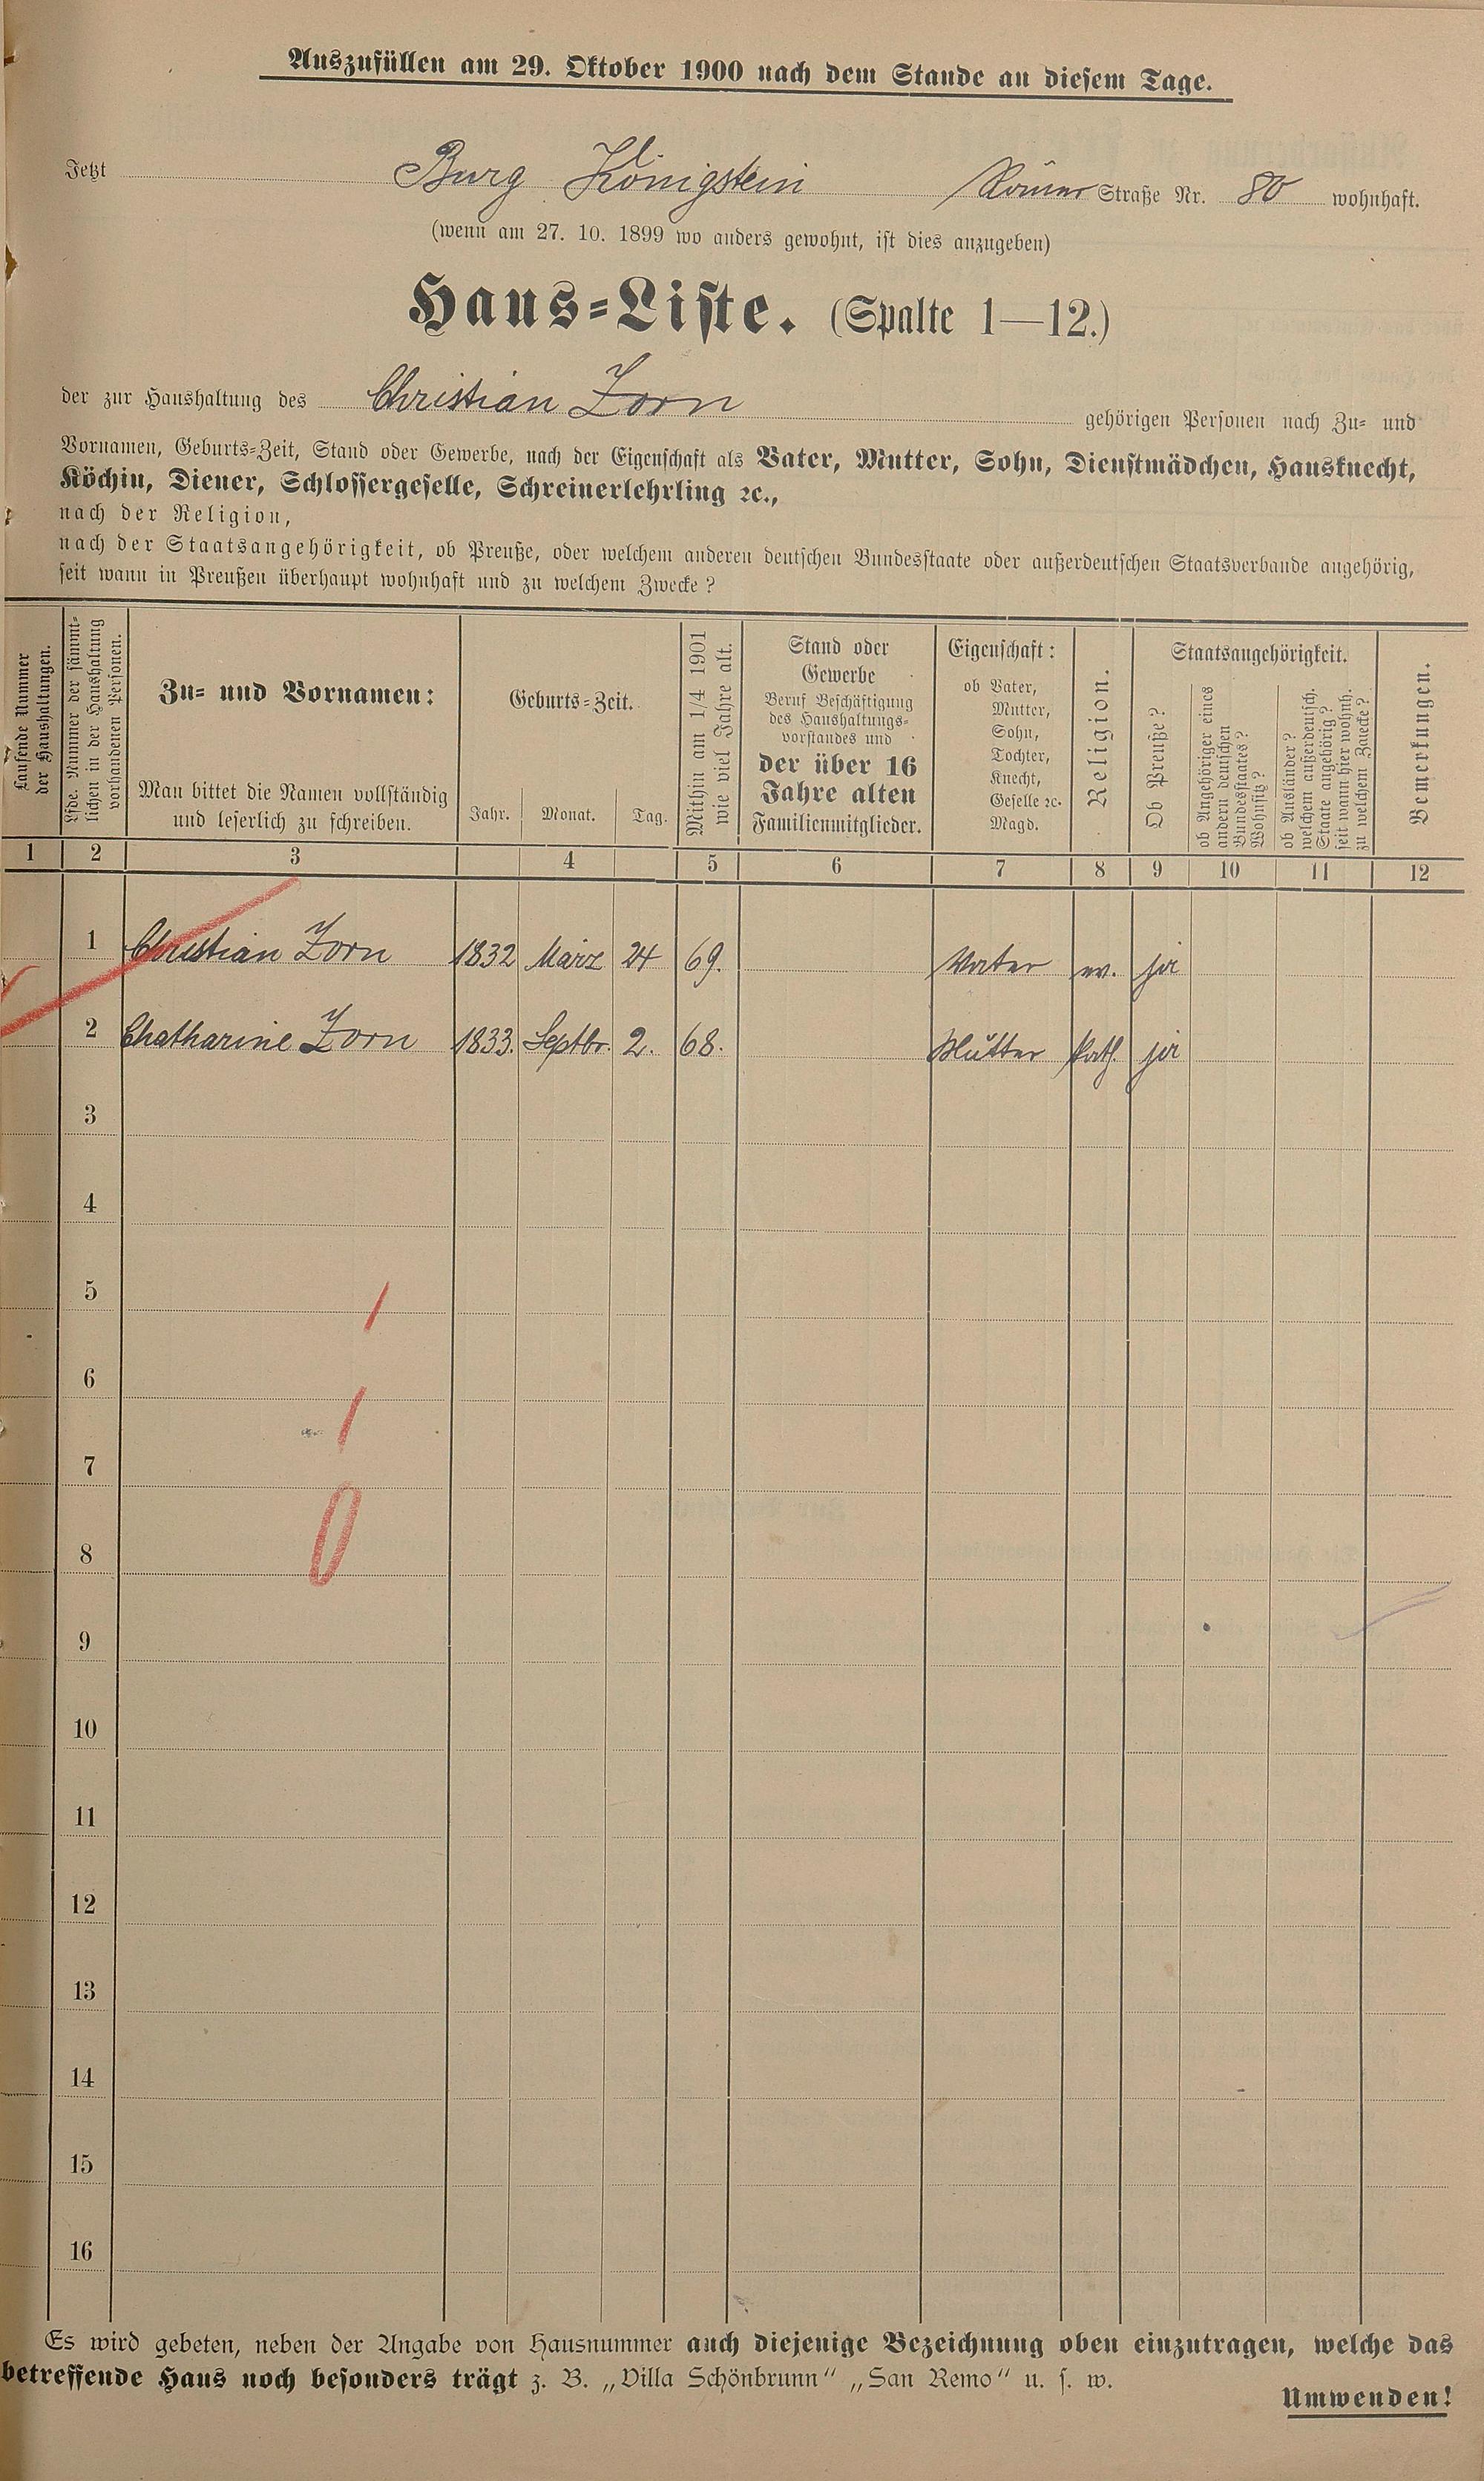 Auszufüllen am 29. Oktober 1900 nach dem Stande an diesem Tage.
Jetzt Burg Königstein Römer Straße Nr. 80 wohnhaft.
(wenn am 27. 10. 1899 wo anders gewohnt, ist dies anzugeben)
Haus-Liste. (Spalte 1—12.)
der zur Haushaltung des Christian Zorn gehörigen Personen nach Zu- und
Vornamen, Geburts-Zeit, Stand oder Gewerbe, nach der Eigenschaft als Vater, Mutter, Sohn, Dienstmädchen, Hausknecht,
Köchin, Diener, Schlossergeselle, Schreinerlehrling ꝛc.,
nach der Religion,
nach der Staatsangehörigkeit, ob Preuße, oder welchem anderen deutschen Bundesstaate oder außerdeutschen Staatsverbande angehörig,
seit wann in Preußen überhaupt wohnhaft und zu welchem Zwecke?
Laufende Nummer
der Haushaltungen.
Lfde. Nummer der sämmt-
lichen in der Haushaltung
vorhandenen Personen.
Zu- und Vornamen:
Man bittet die Namen vollständig
und leserlich zu schreiben.
Geburts-Zeit.
Jahr. Monat. Tag.
Mithin am 1/4 1901
wie viel Jahre alt.
Stand oder
Gewerbe
Beruf Beschäftigung
des Haushaltungs-
vorstandes und
der über 16
Jahre alten
Familienmitglieder.
Eigenschaft:
ob Vater,
Mutter,
Sohn,
Tochter,
Knecht,
Geselle ꝛc.
Magd.
Religion.
Staatsangehörigkeit.
Ob Preuße?
ob Angehöriger eines
andern deutschen
Bundesstaates?
Wohnsitz?
ob Ausländer?
welchem außerdeutsch.
Staate angehörig?
seit wann hier wohnh.
zu welchem Zwecke?
Bemerkungen.
1 2 3 4 5 6 7 8 9 10 11 12
1 Christian Zorn 1832 März 24 69. Vater ev. ja
2 Chatharine Zorn 1833. Septbr. 2. 68. Mutter kath. ja
3
4
5
6
7
8
9
10
11
12
13
14
15
16
Es wird gebeten, neben der Angabe von Hausnummer auch diejenige Bezeichnung oben einzutragen, welche das
betreffende Haus noch besonders trägt z. B. „Villa Schönbrunn“ „San Remo“ u. s. w.
Umwenden!